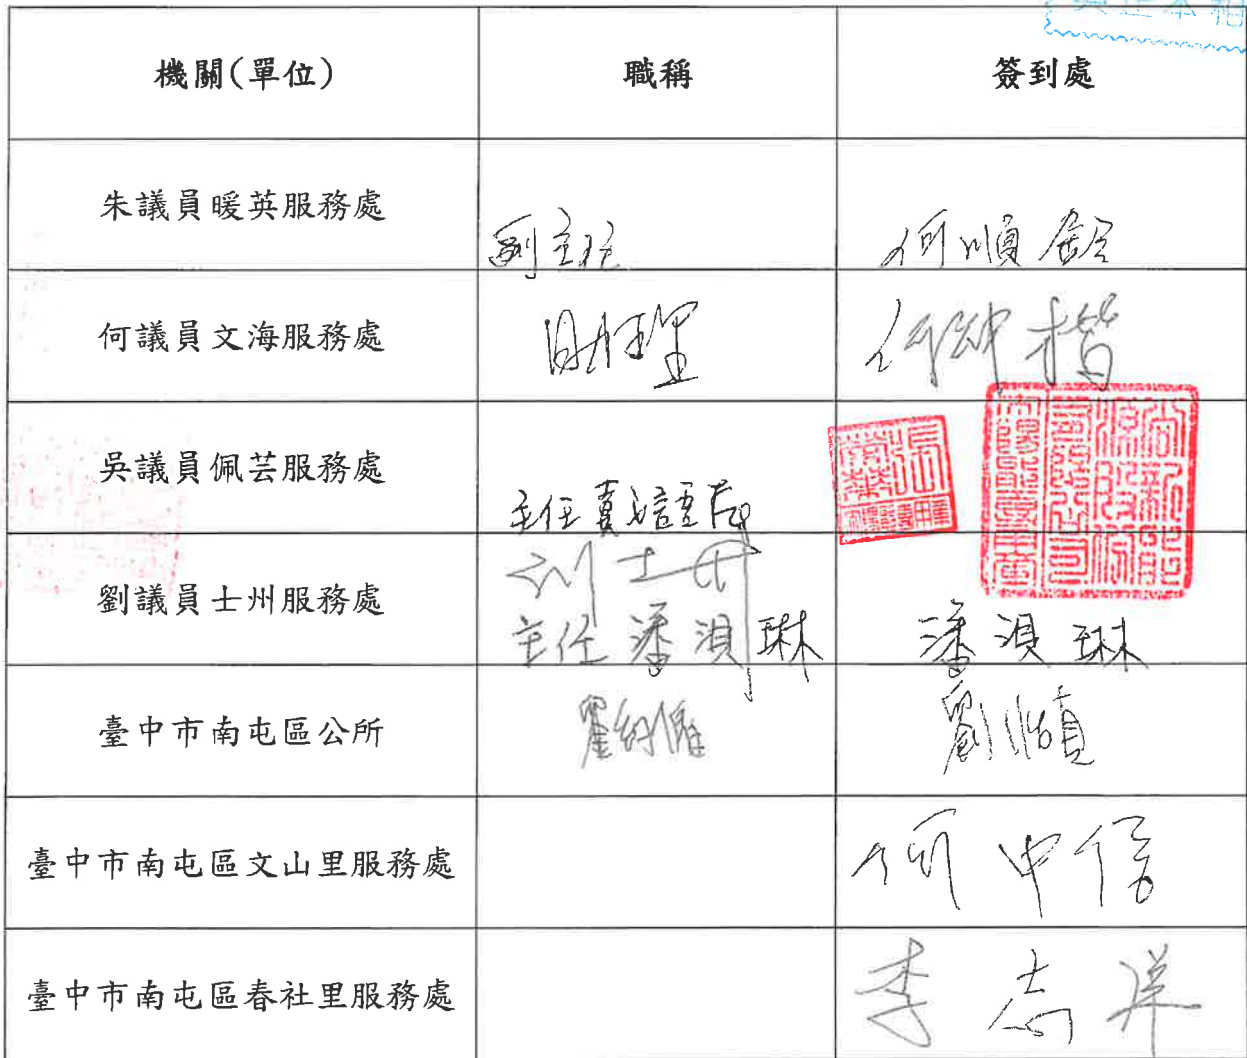 機關(單位) 職稱 簽到處
朱議員暖英服務處 副主任 何順銘
何議員文海服務處 助理 何坤楷
吳議員佩芸服務處 主任
劉議員士州服務處 劉士州
主任 潘湏琳 潘湏琳
臺中市南屯區公所
臺中市南屯區文山里服務處 何中信
臺中市南屯區春社里服務處 李志洋